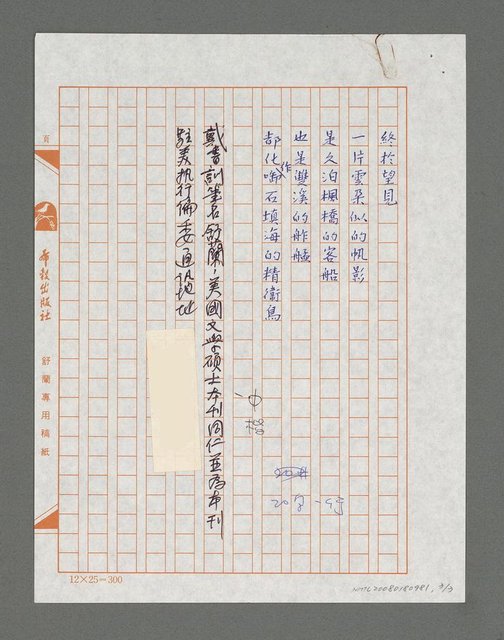 終於望見
一片雲朵似的帆影
是久泊楓橋的客船
也是雙溪的舴艋
都化作啣石填海的精衛鳥
戴書訓筆名舒蘭,美國文學碩士本刊同仁並為本刊
駐美執行編委通訊地址
20字一行
頁
布穀出版社
舒蘭專用稿紙
12×25=300
NMTL20080180981, 3/3